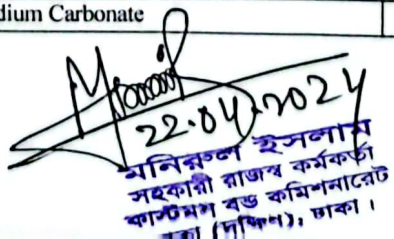 dium Carbonate
22.04.2024
মনিরুল ইসলাম
সহকারী রাজস্ব কর্মকর্তা
কাস্টমস বন্ড কমিশনারেট
(দক্ষিণ), ঢাকা।